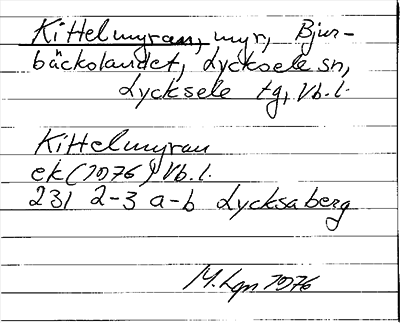 Kittelmyran, myr, Bjur-
bäckslandet, Lycksele sn,
Lycksele tg, Vb.l.
Kittelmyran
ek (1976) Vb.l.
231 2-3 a-b Lycksaberg
M. Lgn 1976